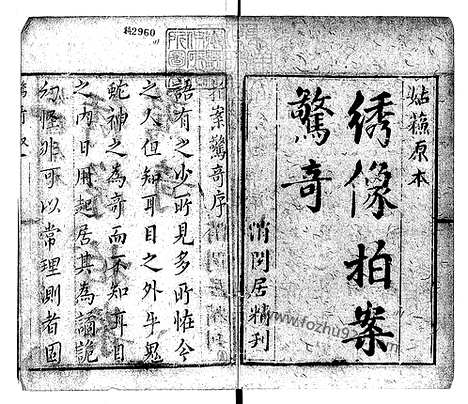 姑蘓原本
綉像拍案
驚奇
消閒居精刊
拍案驚奇序
語有之少所見多所怪今
之人但知耳目之外牛鬼
蛇神之為奇而不知耳目
之内日用起居其為譎詭
幻怪非可以常理測者固
2960